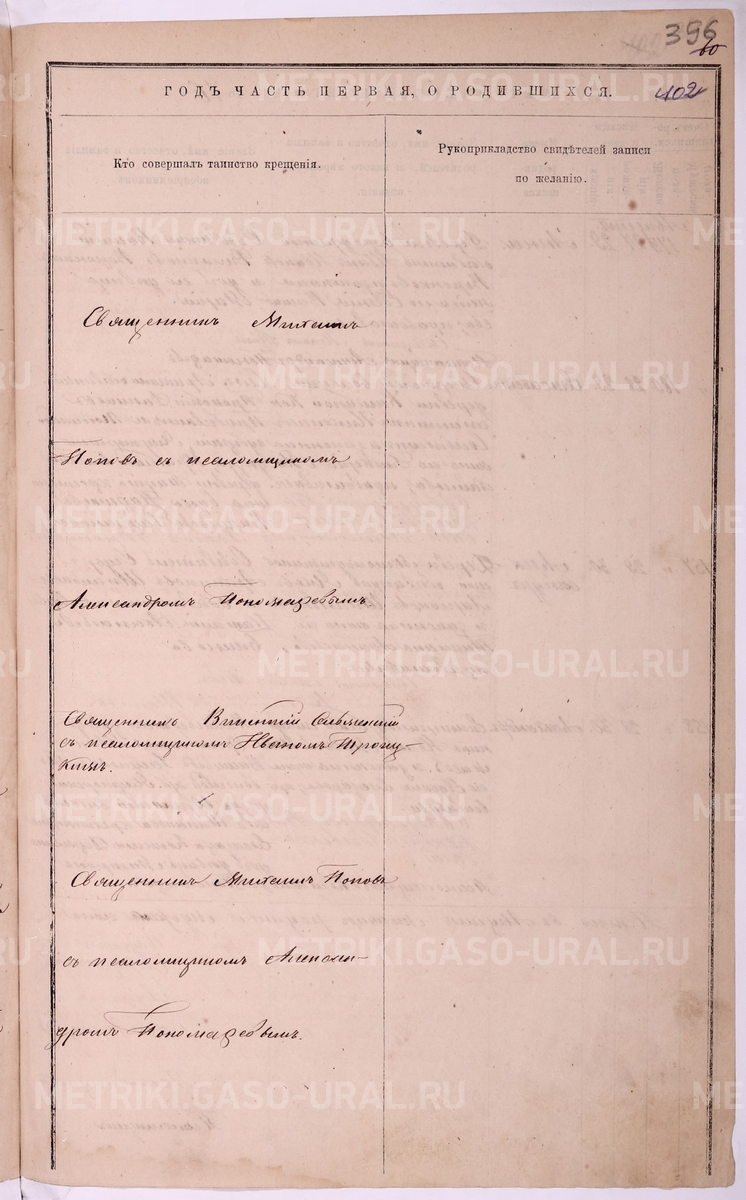 396
60
402
ГОДЪ ЧАСТЬ ПЕРВАЯ, О РОДИВШИХСЯ.
Кто совершалъ таинство крещенія.
Рукоприкладство свидѣтелей записи
по желанію.
Священникъ Михаилъ
Поповъ съ псаломщикомъ
Александромъ Пономаревымъ.
Священникъ
съ псаломщикомъ Иваномъ Троиц-
кимъ.
Священникъ Михаилъ Поповъ
съ псаломщикомъ Алексан-
дромъ Пономаревымъ.
METRIKI.GASO-URAL.RU